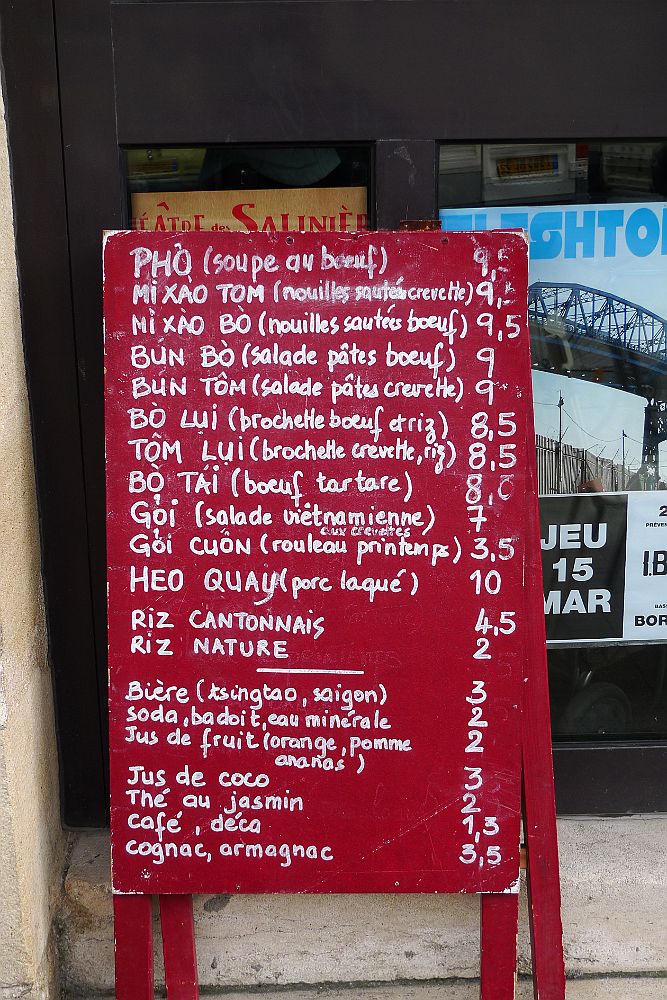 THÉÂTRE des SALINIÈR
FLESHTON
PHỞ (soupe au bœuf) 9,5
MÌ XAO TOM (nouilles sautées crevette) 9,5
MÌ XÀO BÒ (nouilles sautées bœuf) 9,5
BÚN BÒ (salade pâtes bœuf) 9
BUN TÔM (salade pâtes crevette) 9
BÒ LỤI (brochette bœuf et riz) 8,5
TÔM LỤI (brochette crevette, riz) 8,5
BÒ TÁI (bœuf tartare)
GỎI (salade viêtnamienne) 7
aux crevettes
GỎI CUÔN (rouleau printemps) 3,5
HEO QUAY (porc laqué) 10
RIZ CANTONNAIS 4,5
RIZ NATURE 2
Bière (tsingtao, saigon) 3
soda, badoit, eau minérale 2
Jus de fruit (orange, pomme 2
ananas)
Jus de coco 3
Thé au jasmin 2
café, déca 1,3
cognac, armagnac 3,5
JEU
15
MAR
I.B
BOR